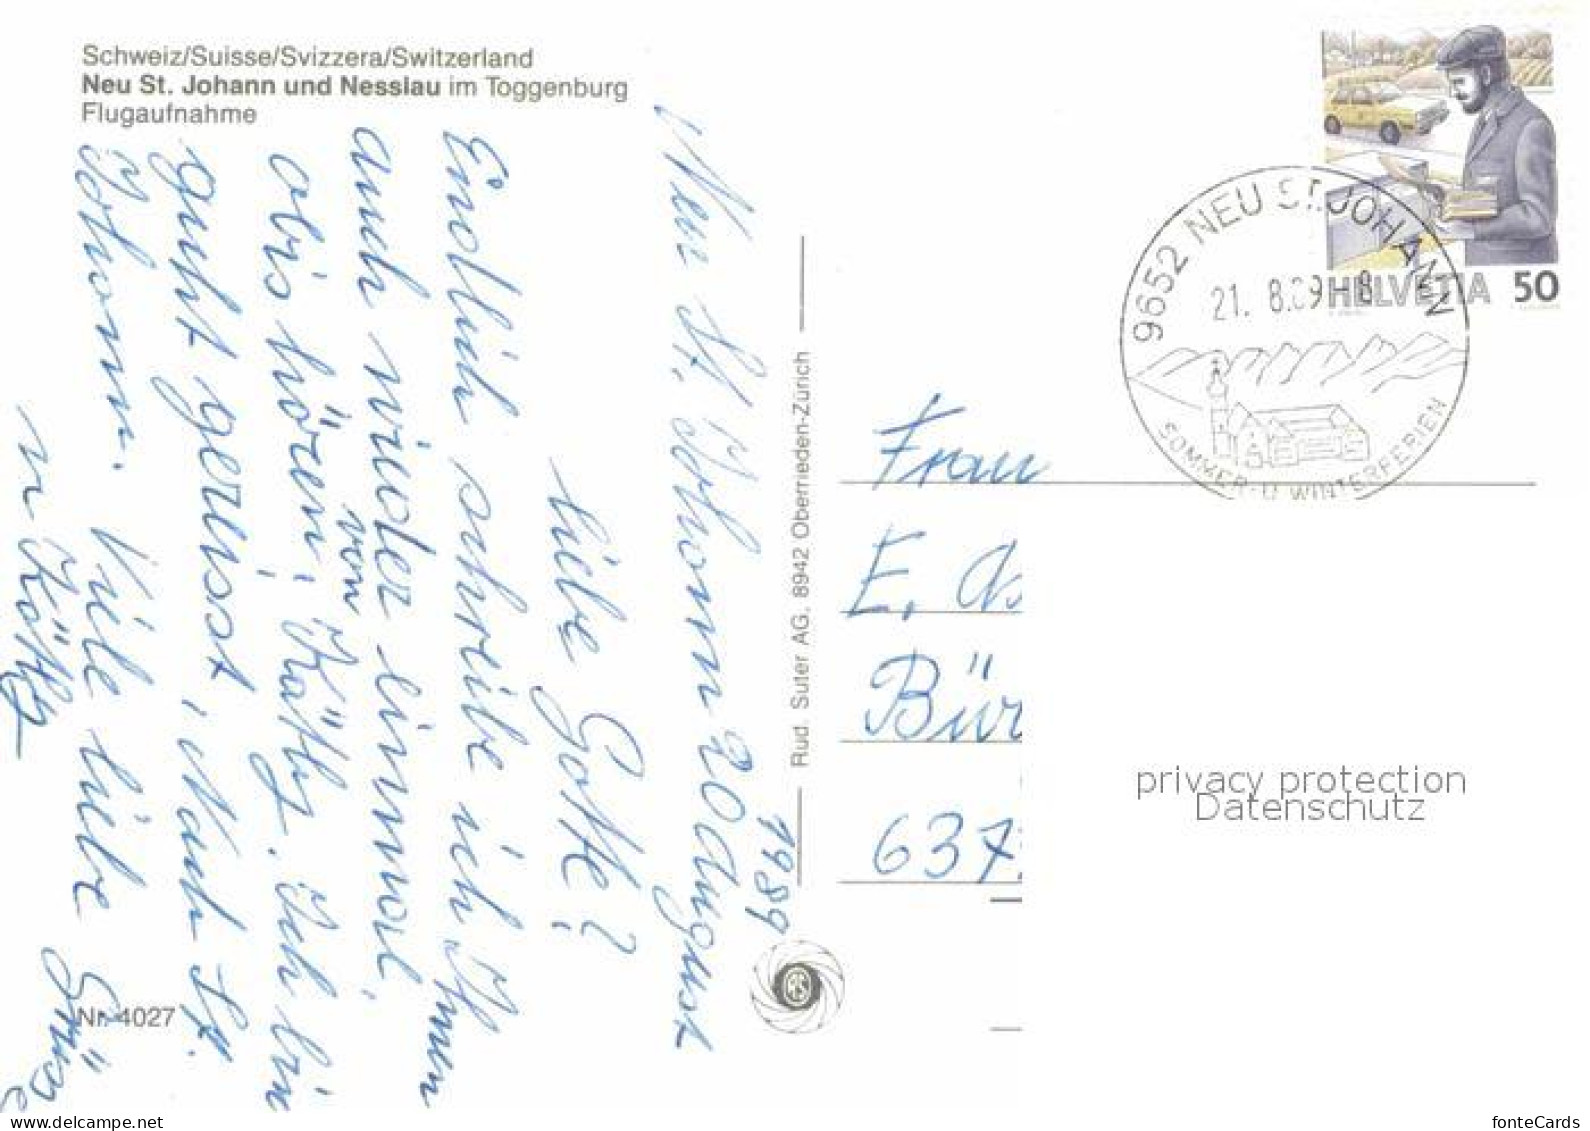 Schweiz/Suisse/Svizzera/Switzerland
Neu St. Johann und Nesslau im Toggenburg
Flugaufnahme
Neu St. Johann 20 August
1989
liebe Gotte?
Endlich schreibe ich Ihnen
auch wieder einmal,
von
abis hören, Käthy. Ich bin
guht gereisst, Nach St.
Johann. Viele liebe Grüsse
Käthy
Nr. 4027
Rud. Suter AG. 8942 Oberrieden-Zürich
RS
9652 NEU ST. JOHANN
21. 8.89 - 8
SOMMER- U WINTERFERIEN
HELVETIA 50
Frau
E.
Bür
637
privacy protection
Datenschutz
www.delcampe.net
fonteCards